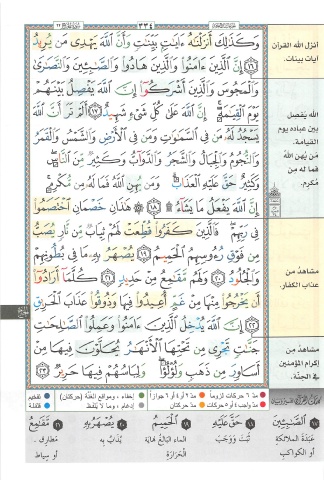 ٣٣٤
وَكَذَٰلِكَ أَنزَلْنَٰهُ ءَايَٰتٍۭ بَيِّنَٰتٍ وَأَنَّ ٱللَّهَ يَهْدِى مَن يُرِيدُ
١٦ إِنَّ ٱلَّذِينَ ءَامَنُوا۟ وَٱلَّذِينَ هَادُوا۟ وَٱلصَّٰبِـِٔينَ وَٱلنَّصَٰرَىٰ
وَٱلْمَجُوسَ وَٱلَّذِينَ أَشْرَكُوٓا۟ إِنَّ ٱللَّهَ يَفْصِلُ بَيْنَهُمْ
يَوْمَ ٱلْقِيَٰمَةِ إِنَّ ٱللَّهَ عَلَىٰ كُلِّ شَىْءٍ شَهِيدٌ ١٧ أَلَمْ تَرَ أَنَّ ٱللَّهَ
يَسْجُدُ لَهُۥ مَن فِى ٱلسَّمَٰوَٰتِ وَمَن فِى ٱلْأَرْضِ وَٱلشَّمْسُ وَٱلْقَمَرُ
وَٱلنُّجُومُ وَٱلْجِبَالُ وَٱلشَّجَرُ وَٱلدَّوَآبُّ وَكَثِيرٌ مِّنَ ٱلنَّاسِ
وَكَثِيرٌ حَقَّ عَلَيْهِ ٱلْعَذَابُ وَمَن يُهِنِ ٱللَّهُ فَمَا لَهُۥ مِن مُّكْرِمٍ
إِنَّ ٱللَّهَ يَفْعَلُ مَا يَشَآءُ ١٨ هَٰذَانِ خَصْمَانِ ٱخْتَصَمُوا۟
فِى رَبِّهِمْ فَٱلَّذِينَ كَفَرُوا۟ قُطِّعَتْ لَهُمْ ثِيَابٌ مِّن نَّارٍ يُصَبُّ
مِن فَوْقِ رُءُوسِهِمُ ٱلْحَمِيمُ ١٩ يُصْهَرُ بِهِۦ مَا فِى بُطُونِهِمْ
وَٱلْجُلُودُ ٢٠ وَلَهُم مَّقَٰمِعُ مِنْ حَدِيدٍ ٢١ كُلَّمَآ أَرَادُوٓا۟
أَن يَخْرُجُوا۟ مِنْهَا مِنْ غَمٍّ أُعِيدُوا۟ فِيهَا وَذُوقُوا۟ عَذَابَ ٱلْحَرِيقِ
٢٢ إِنَّ ٱللَّهَ يُدْخِلُ ٱلَّذِينَ ءَامَنُوا۟ وَعَمِلُوا۟ ٱلصَّٰلِحَٰتِ
جَنَّٰتٍ تَجْرِى مِن تَحْتِهَا ٱلْأَنْهَٰرُ يُحَلَّوْنَ فِيهَا مِنْ
أَسَاوِرَ مِن ذَهَبٍ وَلُؤْلُؤًا وَلِبَاسُهُمْ فِيهَا حَرِيرٌ ٢٣
أنزل الله القرآن
آيات بينات.
الله يفصل
بين عباده يوم
القيامة.
من يُهن اللهُ
فما له مِن
مُكرم.
مشاهد من
عذاب الكفار.
مشاهد من
إكرام المؤمنين
في الجنة.
مدّ ٦ حركات لزوماً
مدّ ٢ أو ٤ أو ٦ جوازاً
إخفاء، ومواقع الغُنَّة (حركتان)
تفخيم
مدّ واجب ٤ أو ٥ حركات
مدّ حركتان
إدغام، وما لا يُلفَظ
قلقلة
١٧ الصَّابِئِينَ
عَبَدَةَ الملائكةِ
أو الكواكبِ
١٨ حَقَّ عَلَيْهِ
ثَبَتَ ووَجَبَ
الْحَمِيمُ
الماءُ البالغُ غايةَ
الحرارةِ
٢٠ يُصْهَرُ بِهِ
يُذابُ به
٢١ مَقَامِعُ
مَطارِقُ
أو سِياطٌ